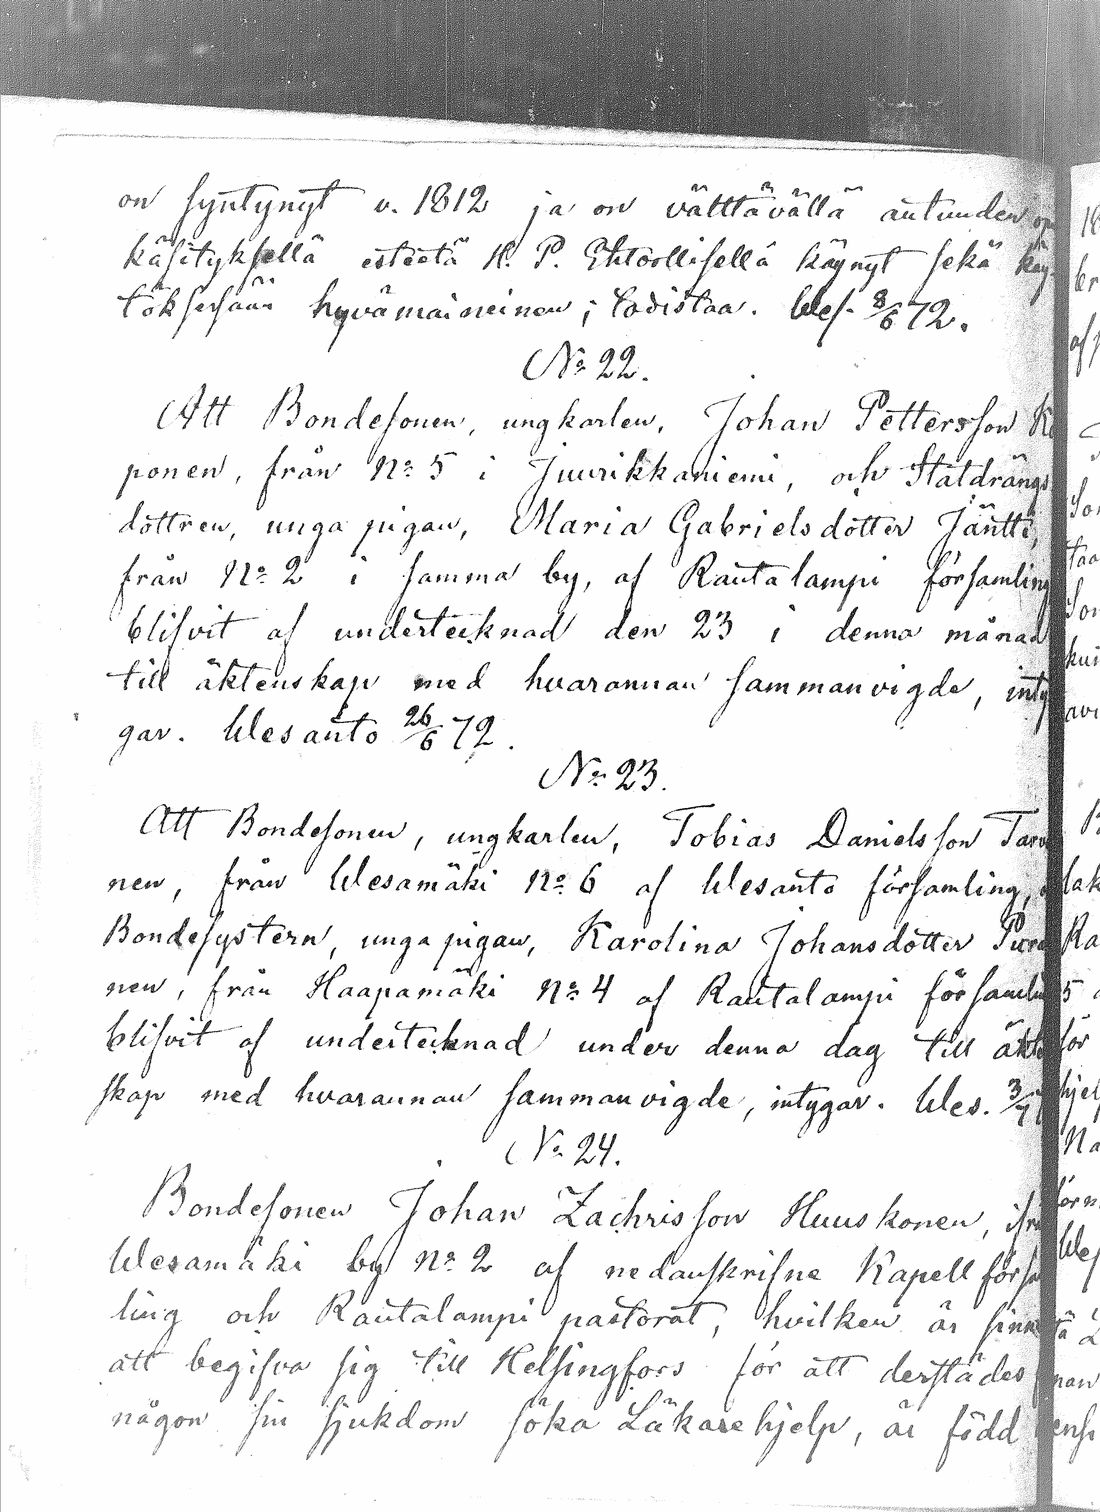 on syntynyt v. 1812 ja on välttävällä autuuden
käsityksellä estettä H. P. Ehtoollisella käynyt sekä käy-
töksessään hyvämaineinen; todistaa. Wes. 8/6 72.
No 22.
Att Bondesonen, ungkarlen, Johan Pettersson
ponen, från No 5 i Juurikkaniemi, och Statdrängs
dottren, unga pigan, Maria Gabrielsdotter Jäntti,
från No 2 i samma by, af Rautalampi församling
blifvit af undertecknad den 23 i denna månad
till äktenskap med hvarannan sammanvigde, inty
gar. Wesanto 26/6 72.
No 23.
Att Bondesonen, ungkarlen, Tobias Danielsson
nen, från Wesamäki No 6 af Wesanto församling,
Bondesystern, unga pigan, Karolina Johansdotter
nen, från Haapamäki No 4 af Rautalampi församlin
blifvit af undertecknad under denna dag till äkten
skap med hvarannan sammanvigde, intygar. Wes. 3/7
No 24.
Bondesonen Johan Zachrisson Huuskonen, ifrån
Wesamäki by No 2 af nedanskrifne Kapell försam
ling och Rautalampi pastorat, hvilken är sinnad
att begifva sig till Helsingfors för att derstädes
någon sin sjukdom söka Läkarehjelp, är född